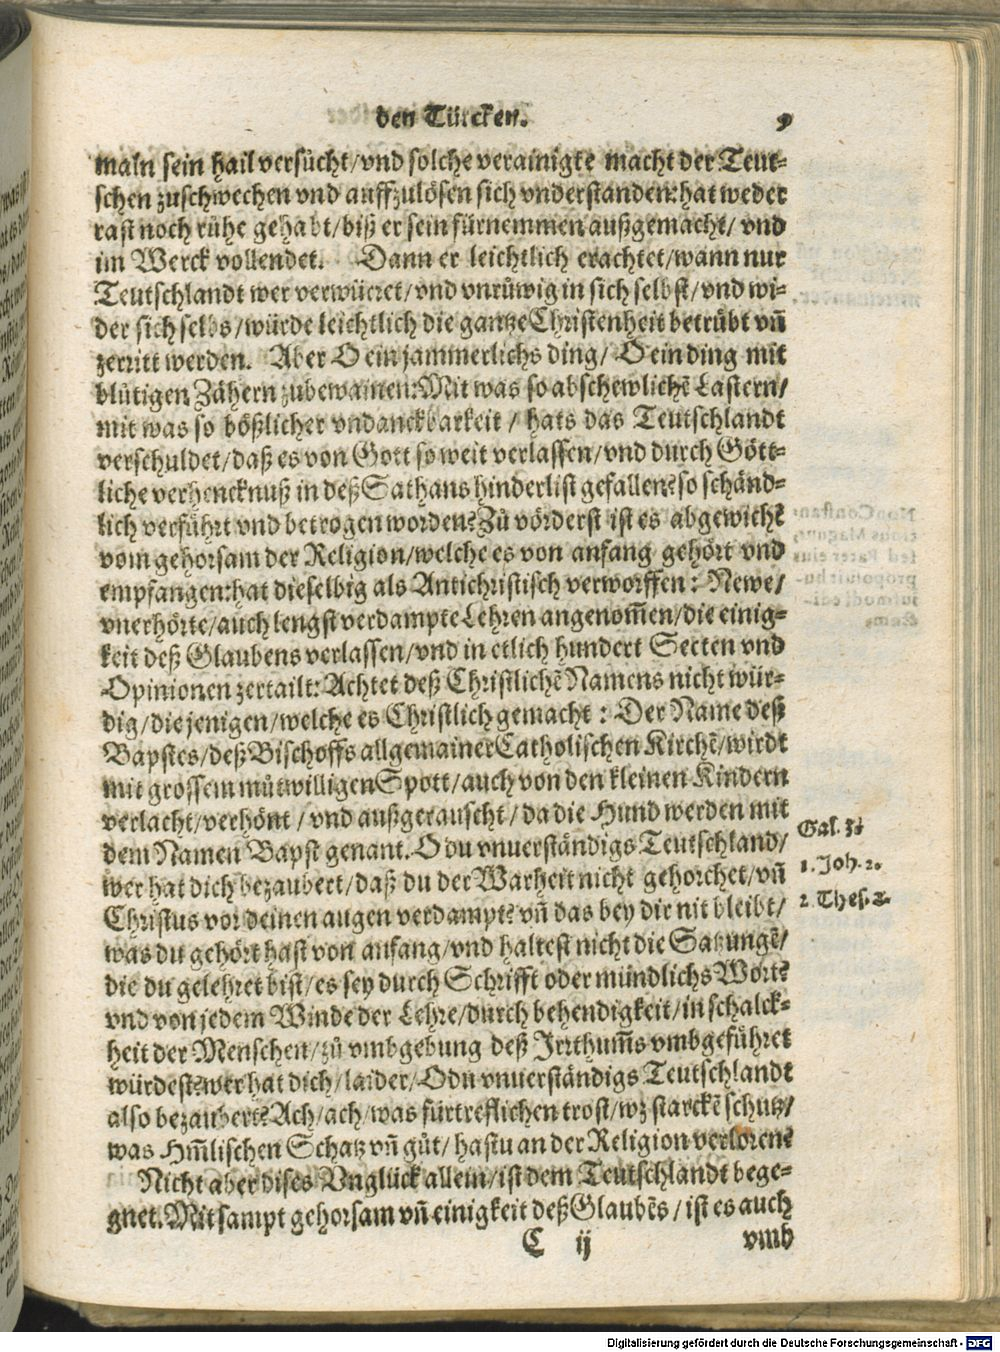 den Türcken. 9
maln sein hail versůcht/vnd solche verainigte macht der Teut-
schen zuschwechen vnd auffzulösen sich vnderstanden: hat weder
rast noch růhe gehabt/biß er sein fürnemmen außgemacht/vnd
im Werck vollendet. Dann er leichtlich erachtet/wann nur
Teutschlandt wer verwürret/vnd vnrůwig in sich selbst/vnd wi-
der sich selbs/würde leichtlich die gantze Christenheit betrůbt vñ
zerritt werden. Aber O ein jammerlichs ding/ O ein ding mit
blůtigen Zähern zubewainen: Mit was so abschewlichẽ Lastern/
mit was so bößlicher vndanckbarkeit/ hats das Teutschlandt
verschuldet/daß es von Gott so weit verlassen/vnd durch Gött-
liche verhencknuß in deß Sathans hinderlist gefallen? so schänd-
lich verführt vnd betrogen worden? Zů vörderst ist es abgewichẽ
vom gehorsam der Religion/welche es von anfang gehört vnd
empfangen: hat dieselbig als Antichristisch verworffen: Newe/
vnerhörte/auch lengst verdampte Lehren angenom̃en/die einig-
keit deß Glaubens verlassen/vnd in etlich hundert Secten vnd
Opinionen zertailt: Achtet deß Christlichẽ Namens nicht wür-
dig/die jenigen/welche es Christlich gemacht: Der Name deß
Bapstes/deß Bischoffs allgemainer Catholischen Kirchẽ/wirdt
mit grossem můtwilligen Spott/auch von den kleinen Kindern
verlacht/verhönt/vnd außgerauscht/da die Hund werden mit
dem Namen Bapst genant. O du vnuerständigs Teutschland/
wer hat dich bezaubert/daß du der Warheit nicht gehorchet/vñ
Christus vor deinen augen verdampt? vñ das bey dir nit bleibt/
was du gehört hast von anfang/vnd haltest nicht die Satzungẽ/
die du gelehret bist/es sey durch Schrifft oder mündlichs Wort?
vnd von jedem Winde der Lehre/durch behendigkeit/in schalck-
heit der Menschen/zů vmbgebung deß Irrthum̃s vmbgeführet
würdest? wer hat dich/laider/O du vnuerständigs Teutschlandt
also bezaubert? Ach/ach/was fürtreflichen trost/wz starckẽ schutz/
was Him̃lischen Schatz vñ gůt/hastu an der Religion verloren?
Nicht aber dises Vnglück allein/ist dem Teutschlandt bege-
gnet. Mit sampt gehorsam vñ einigkeit deß Glaubẽs/ist es auch
C ij vmb
Gal. 3.
1. Joh. 2.
2 Thes. 2.
Digitalisierung gefördert durch die Deutsche Forschungsgemeinschaft - DFG